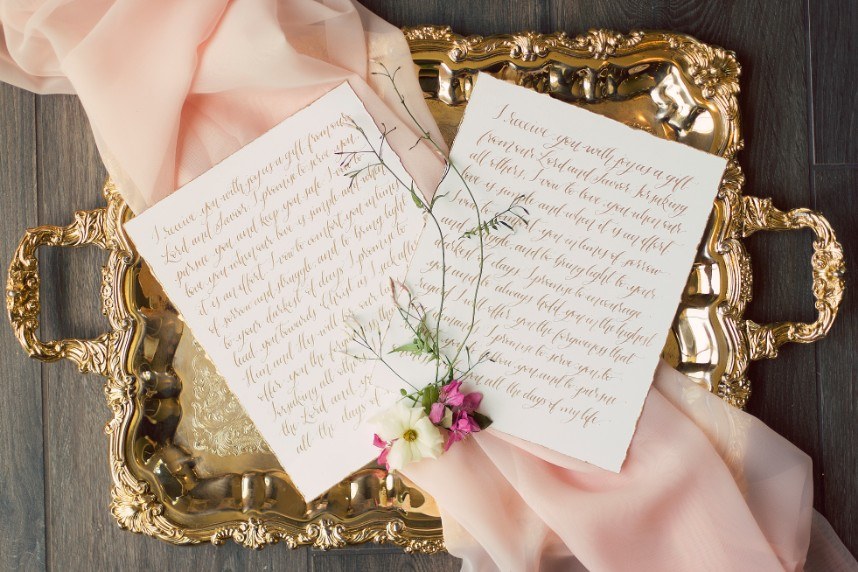 I receive you with joy as a gift from our
Lord and Savior. I promise to serve you
pursue you and keep you safe. I vow to
love you when our love is simple and when
it is an effort. I vow to comfort you in times
of sorrow and struggle, and to bring light
to your darkest of days. I promise to
lead you towards Christ as I seek after
Him and His will for our
offer you the forgiveness
forsaking all others
the Lord and
all the days of
I receive you with joy as a gift
from our Lord and Savior. Forsaking
all others, I vow to love you when our
love is simple and when it is an effort
comfort you in times of sorrow
and struggle, and to bring light to your
darkest of days. I promise to encourage
you and to always hold you in the highest
regard. I will offer you the forgiveness that
I promise to serve you to
you and to pursue
you all the days of my life.